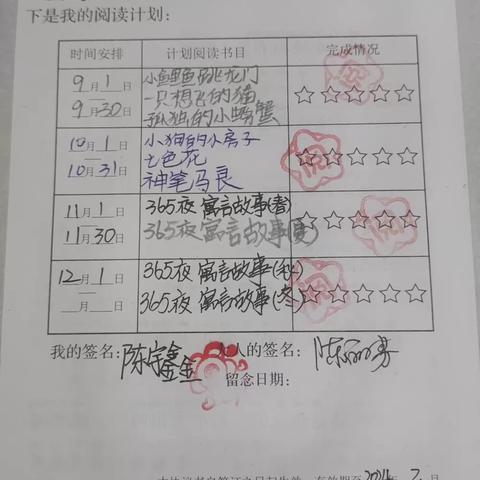 下是我的阅读计划:
时间安排 计划阅读书目 完成情况
9月1日 小鲤鱼跳龙门
一只想飞的猫
9月30日 孤独的小螃蟹
10月1日 小狗的小房子
七色花
10月31日 神笔马良
11月1日 365夜寓言故事(春)
11月30日 365夜寓言故事(夏)
12月1日 365夜寓言故事(秋)
月 日 365夜寓言故事(冬)
我的签名: 陈宇鑫 人的签名:
留念日期: